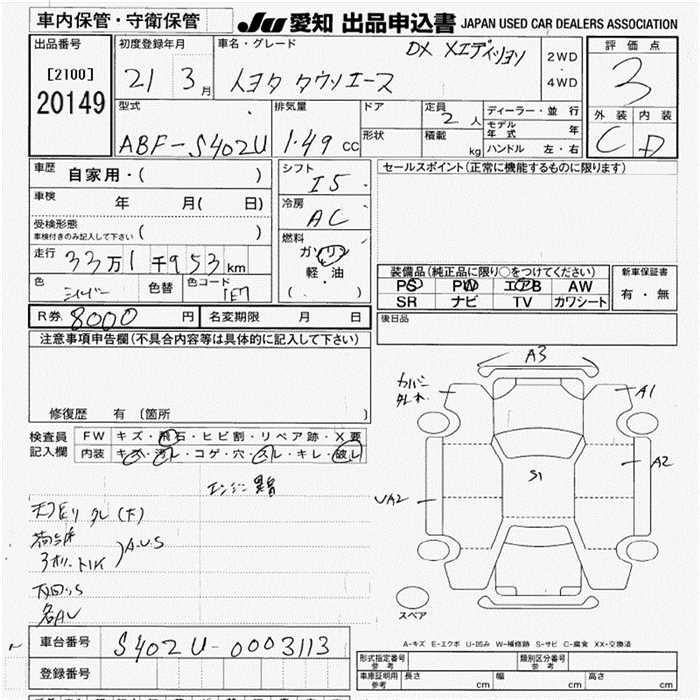 車内保管・守衛保管
JU 愛知 出品申込書 JAPAN USED CAR DEALERS ASSOCIATION
出品番号
[2100]
20149
初度登録年月
21 3月
車名・グレード
DX Xエディション
トヨタ タウンエース
2WD
・
4WD
評価点
3
外装 内装
C D
型式
ABF-S402U
排気量
1.49 cc
ドア
形状
定員
2人
積載
kg
ディーラー・並行
モデル年式 年
ハンドル 左・右
車歴
自家用・( )
車検
年 月( 日)
受検形態
車検付きのみ記入して下さい ( )
走行
33万1千953km
色
シルバー
色替
色コード
1E7
シフト
I5
冷房
AC
燃料
ガソリン
・
軽・油
( . )
セールスポイント(正常に機能するものに限ります)
装備品(純正品に限り○をつけてください)
PS PW エアB AW
SR ナビ TV カワシート
新車保証書
有・無
R券 8000 円
名変期限 月 日
後日品
注意事項申告欄(不具合内容等は具体的に記入して下さい)
修復歴 有 〔箇所 〕
検査員
記入欄
FW キズ・飛石・ヒビ割・リペア跡・X要
内装 キズ・汚レ・コゲ・穴・スレ・キレ・破レ
A.U.S
A3
カバー
A1
A2
S1
UA2
スペア
A-キズ E-エクボ U-凹み W-補修跡 S-サビ C-腐食 XX-交換済
車台番号
S402U-0003113
登録番号
形式指定番号
参考
類別区分番号
参考
車庫証明用
参考
長さ cm
幅 cm
高さ cm